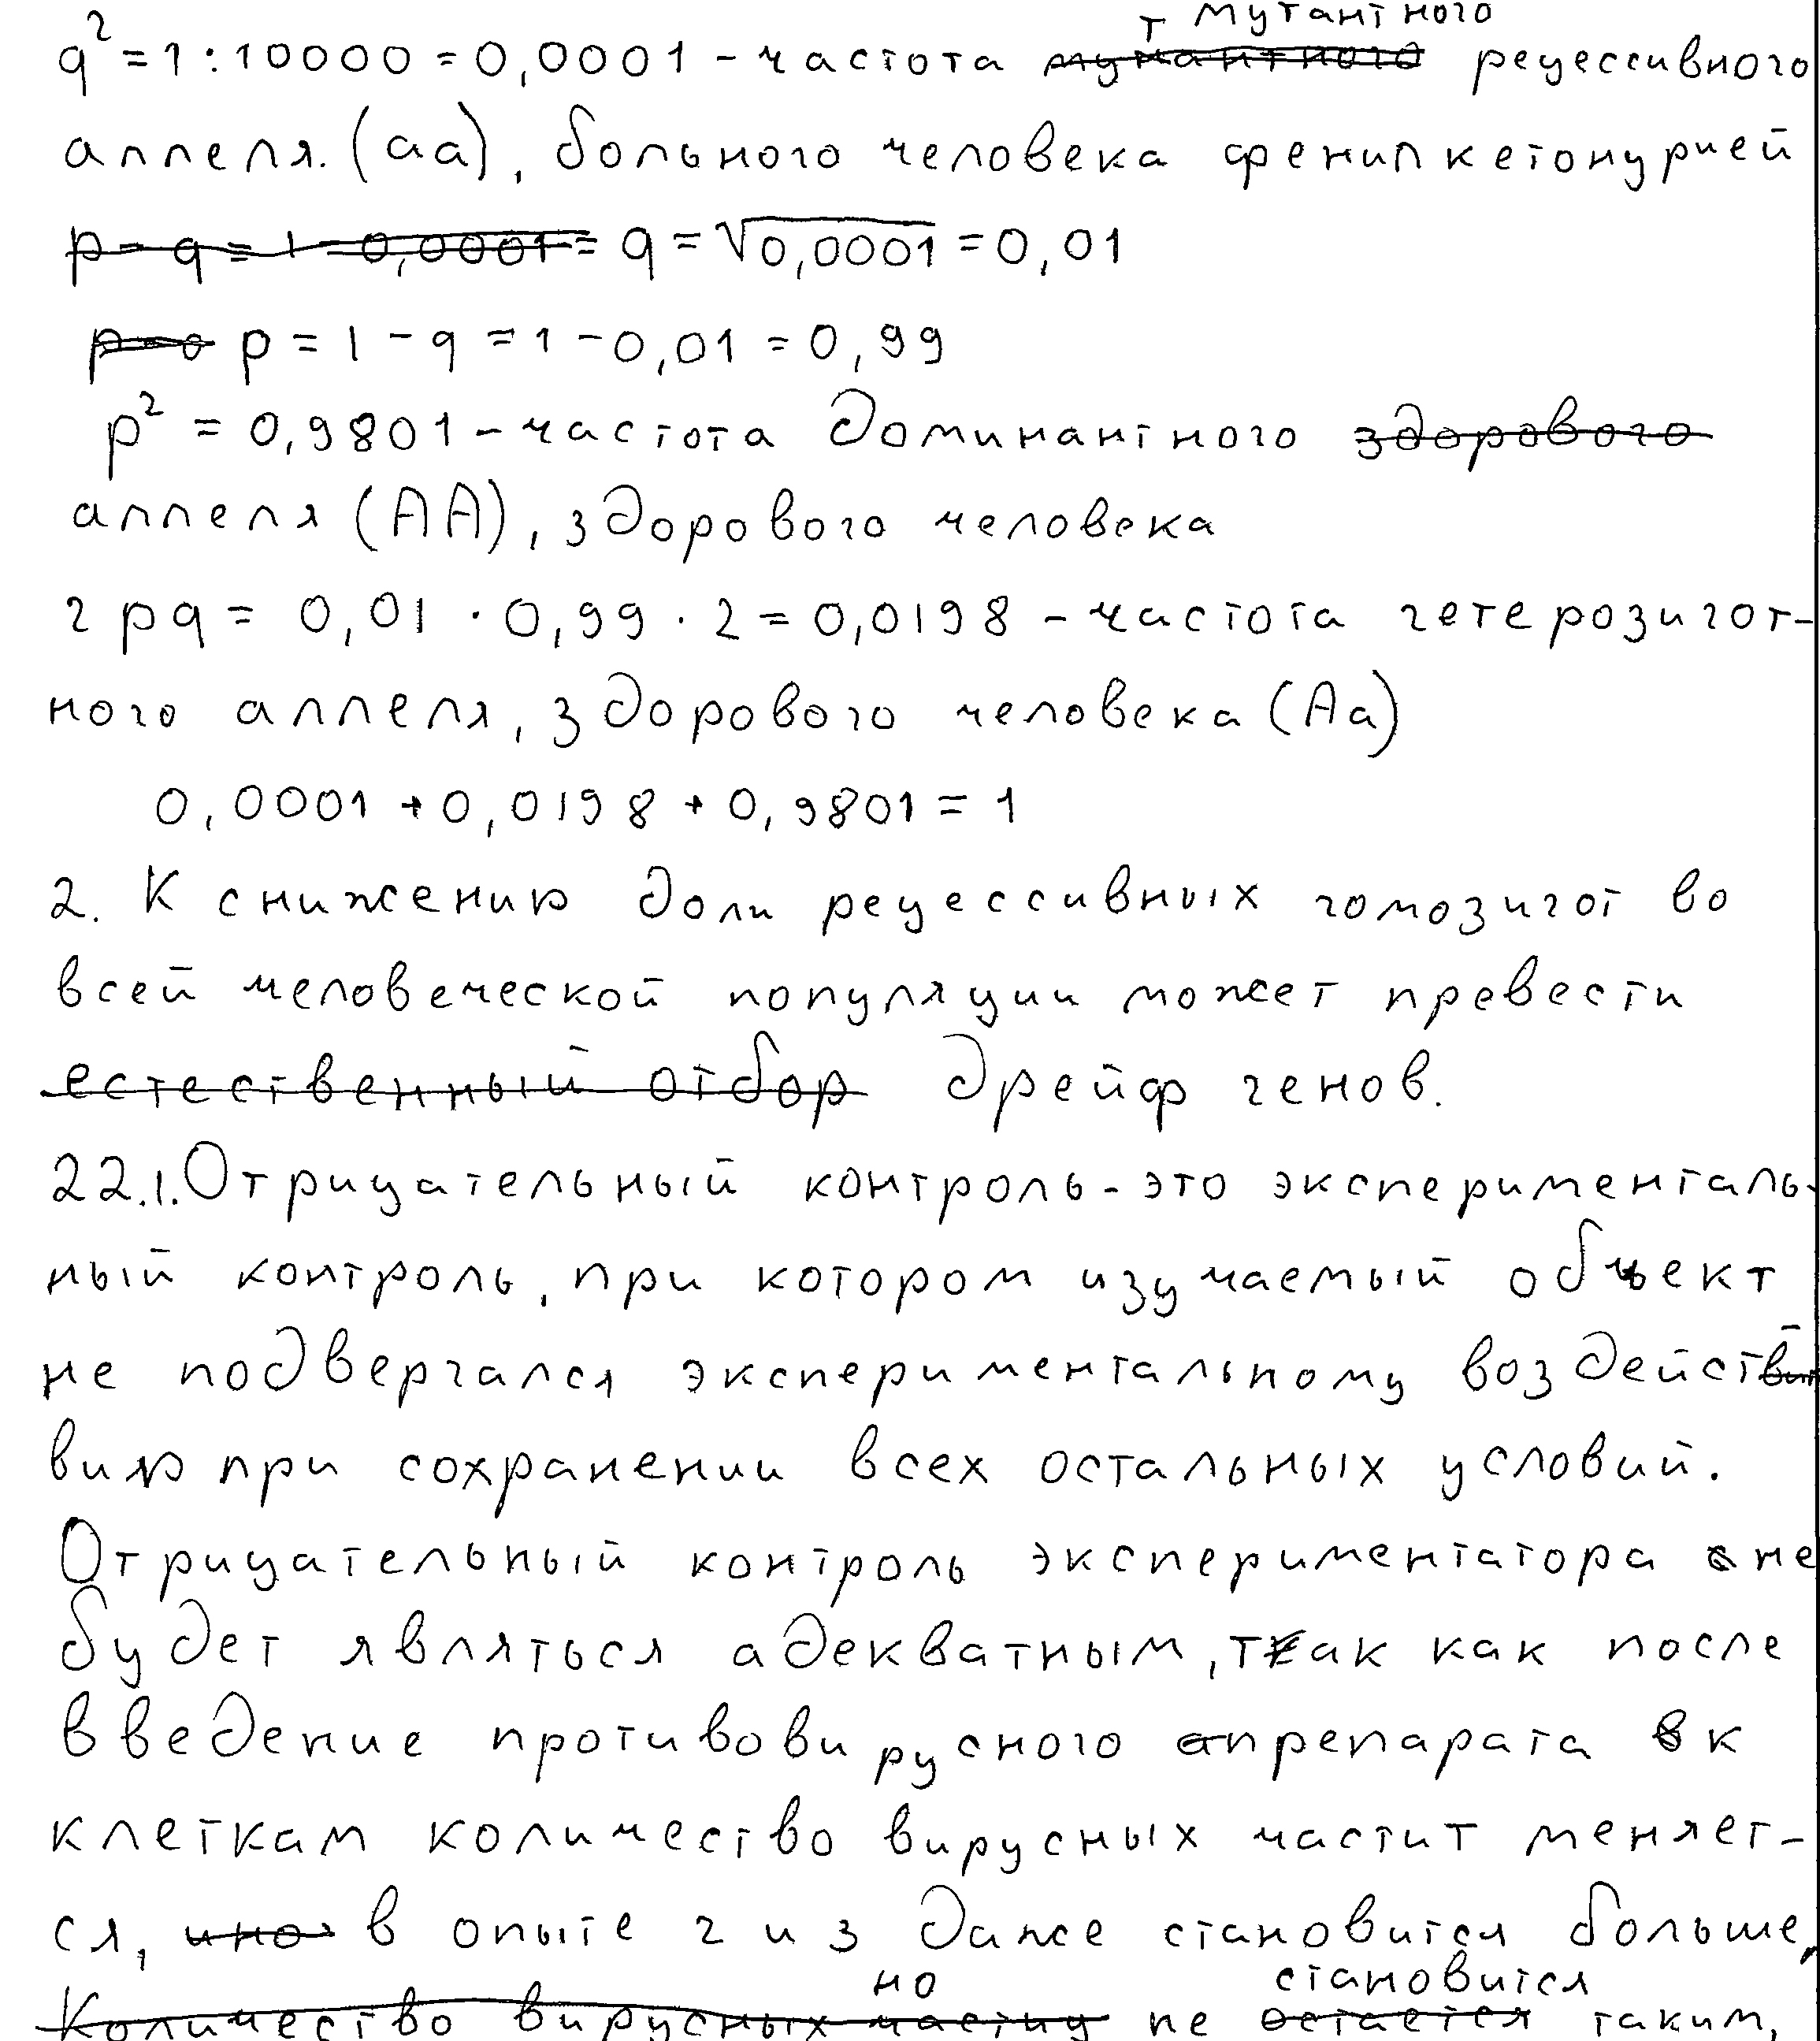 т мутантного
q² = 1 : 10000 = 0,0001 - частота мутантного рецессивного
аллеля. (аа), больного человека фенилкетонурией
p - q = 1 - 0,0001 = q = √0,0001 = 0,01
p = 0 p = 1 - q = 1 - 0,01 = 0,99
p² = 0,9801 - частота доминантного здорового
аллеля (АА), здорового человека
2pq = 0,01 · 0,99 · 2 = 0,0198 - частота гетерозигот-
ного аллеля, здорового человека (Аа)
0,0001 + 0,0198 + 0,9801 = 1
2. К снижению доли рецессивных гомозигот во
всей человеческой популяции может превести
естественный отбор дрейф генов.
22.1. Отрицательный контроль - это эксперименталь-
ный контроль, при котором изучаемый объект
не подвергался экспериментальному воздейст
вию при сохранении всех остальных условий.
Отрицательный контроль экспериментатора не
будет являться адекватным, так как после
введение противовирусного препарата к
клеткам количество вирусных частит меняет-
ся, в опыте 2 и 3 даже становится больше,
но становится
Количество вирусных частиц не остается таким,